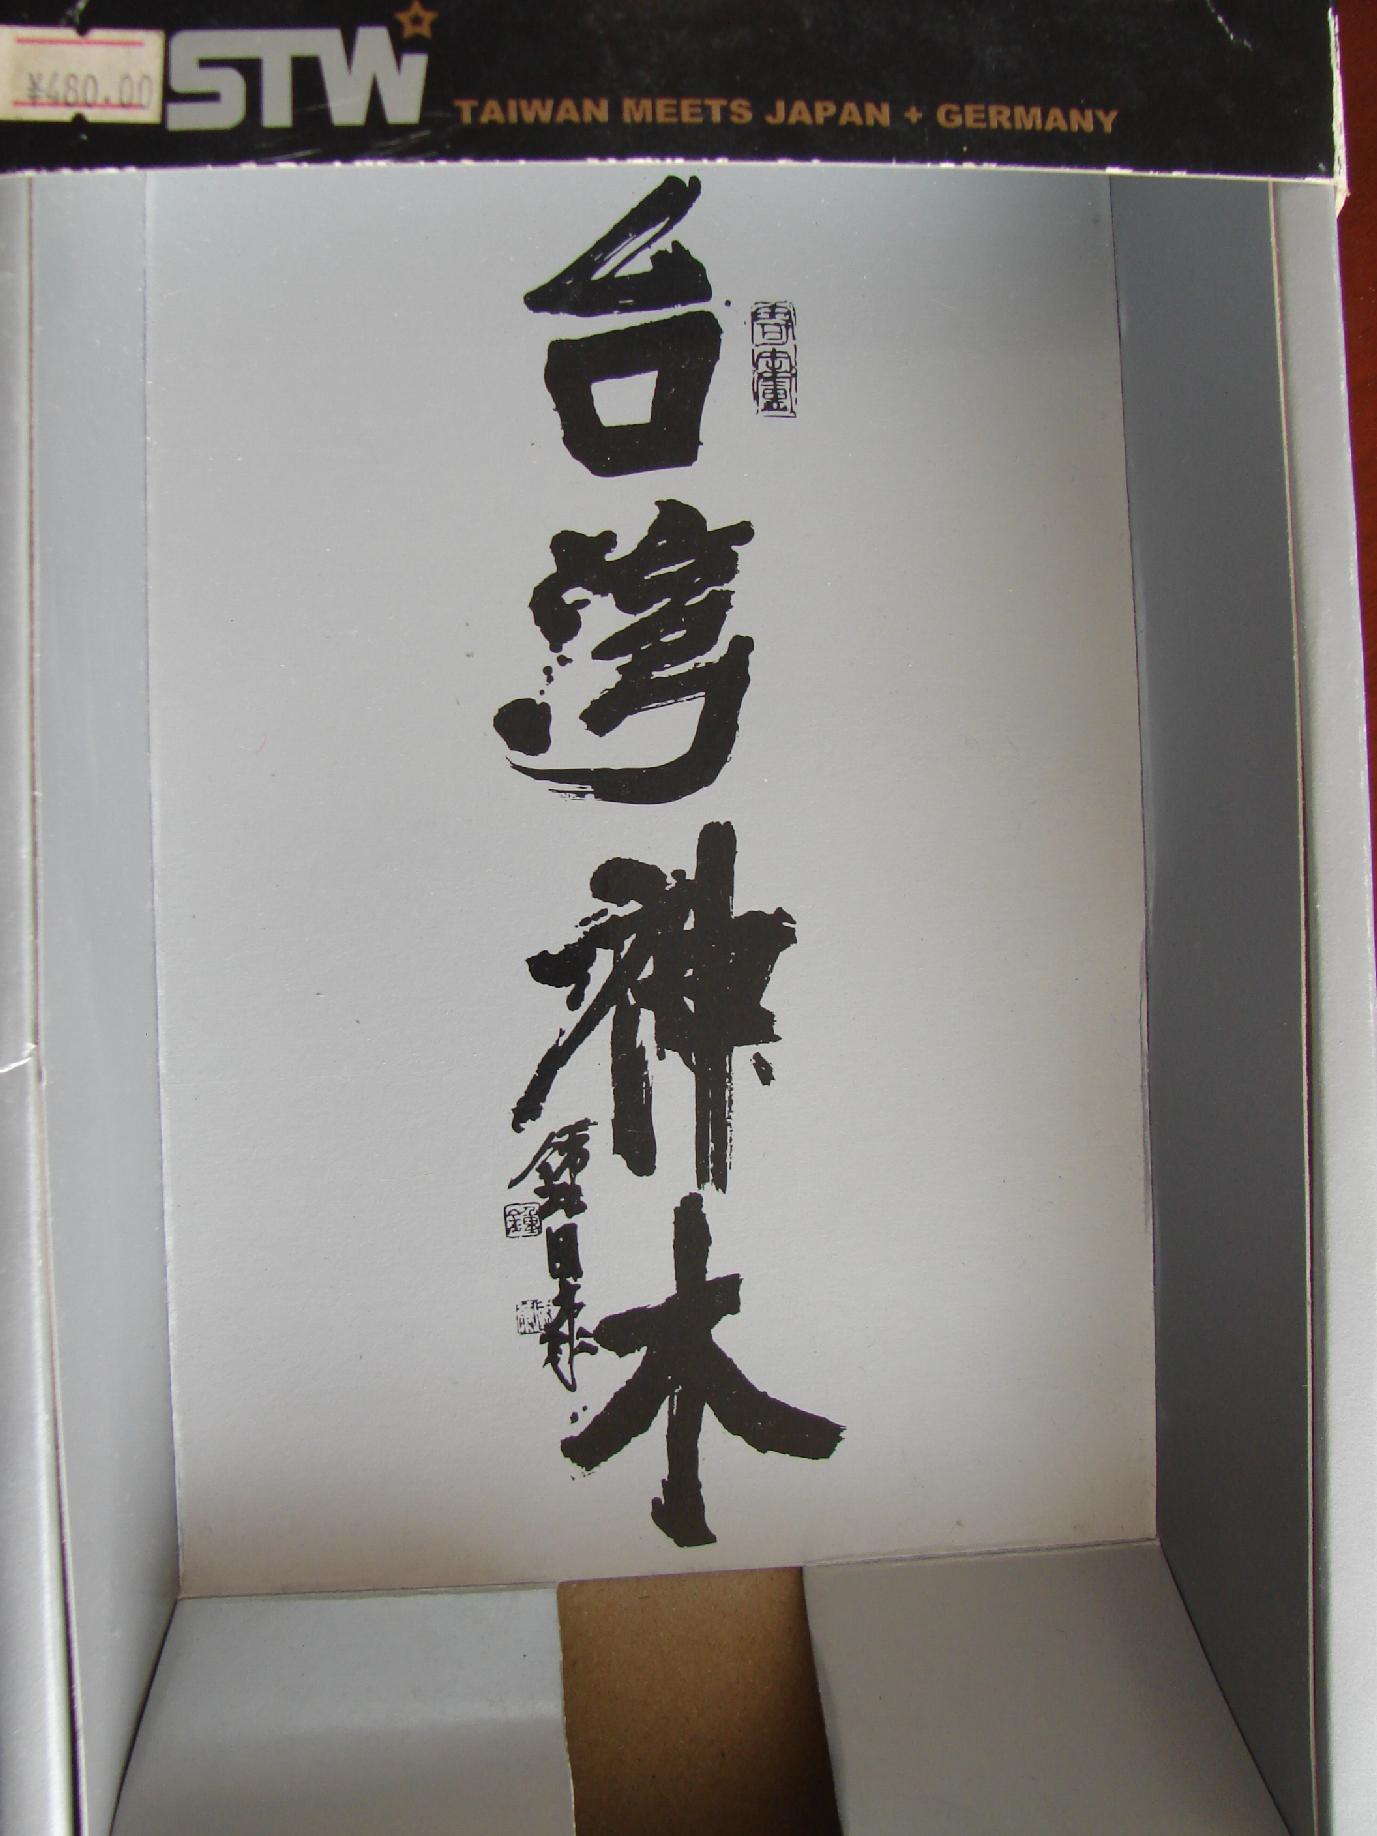 ¥480.00
STW
TAIWAN MEETS JAPAN + GERMANY
台灣神木